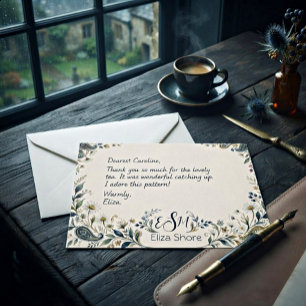 Dearest Caroline,
Thank you so much for the lovely
tea. It was wonderful catching up.
I adore this pattern!
Warmly,
Eliza.
ESM
Eliza Shore